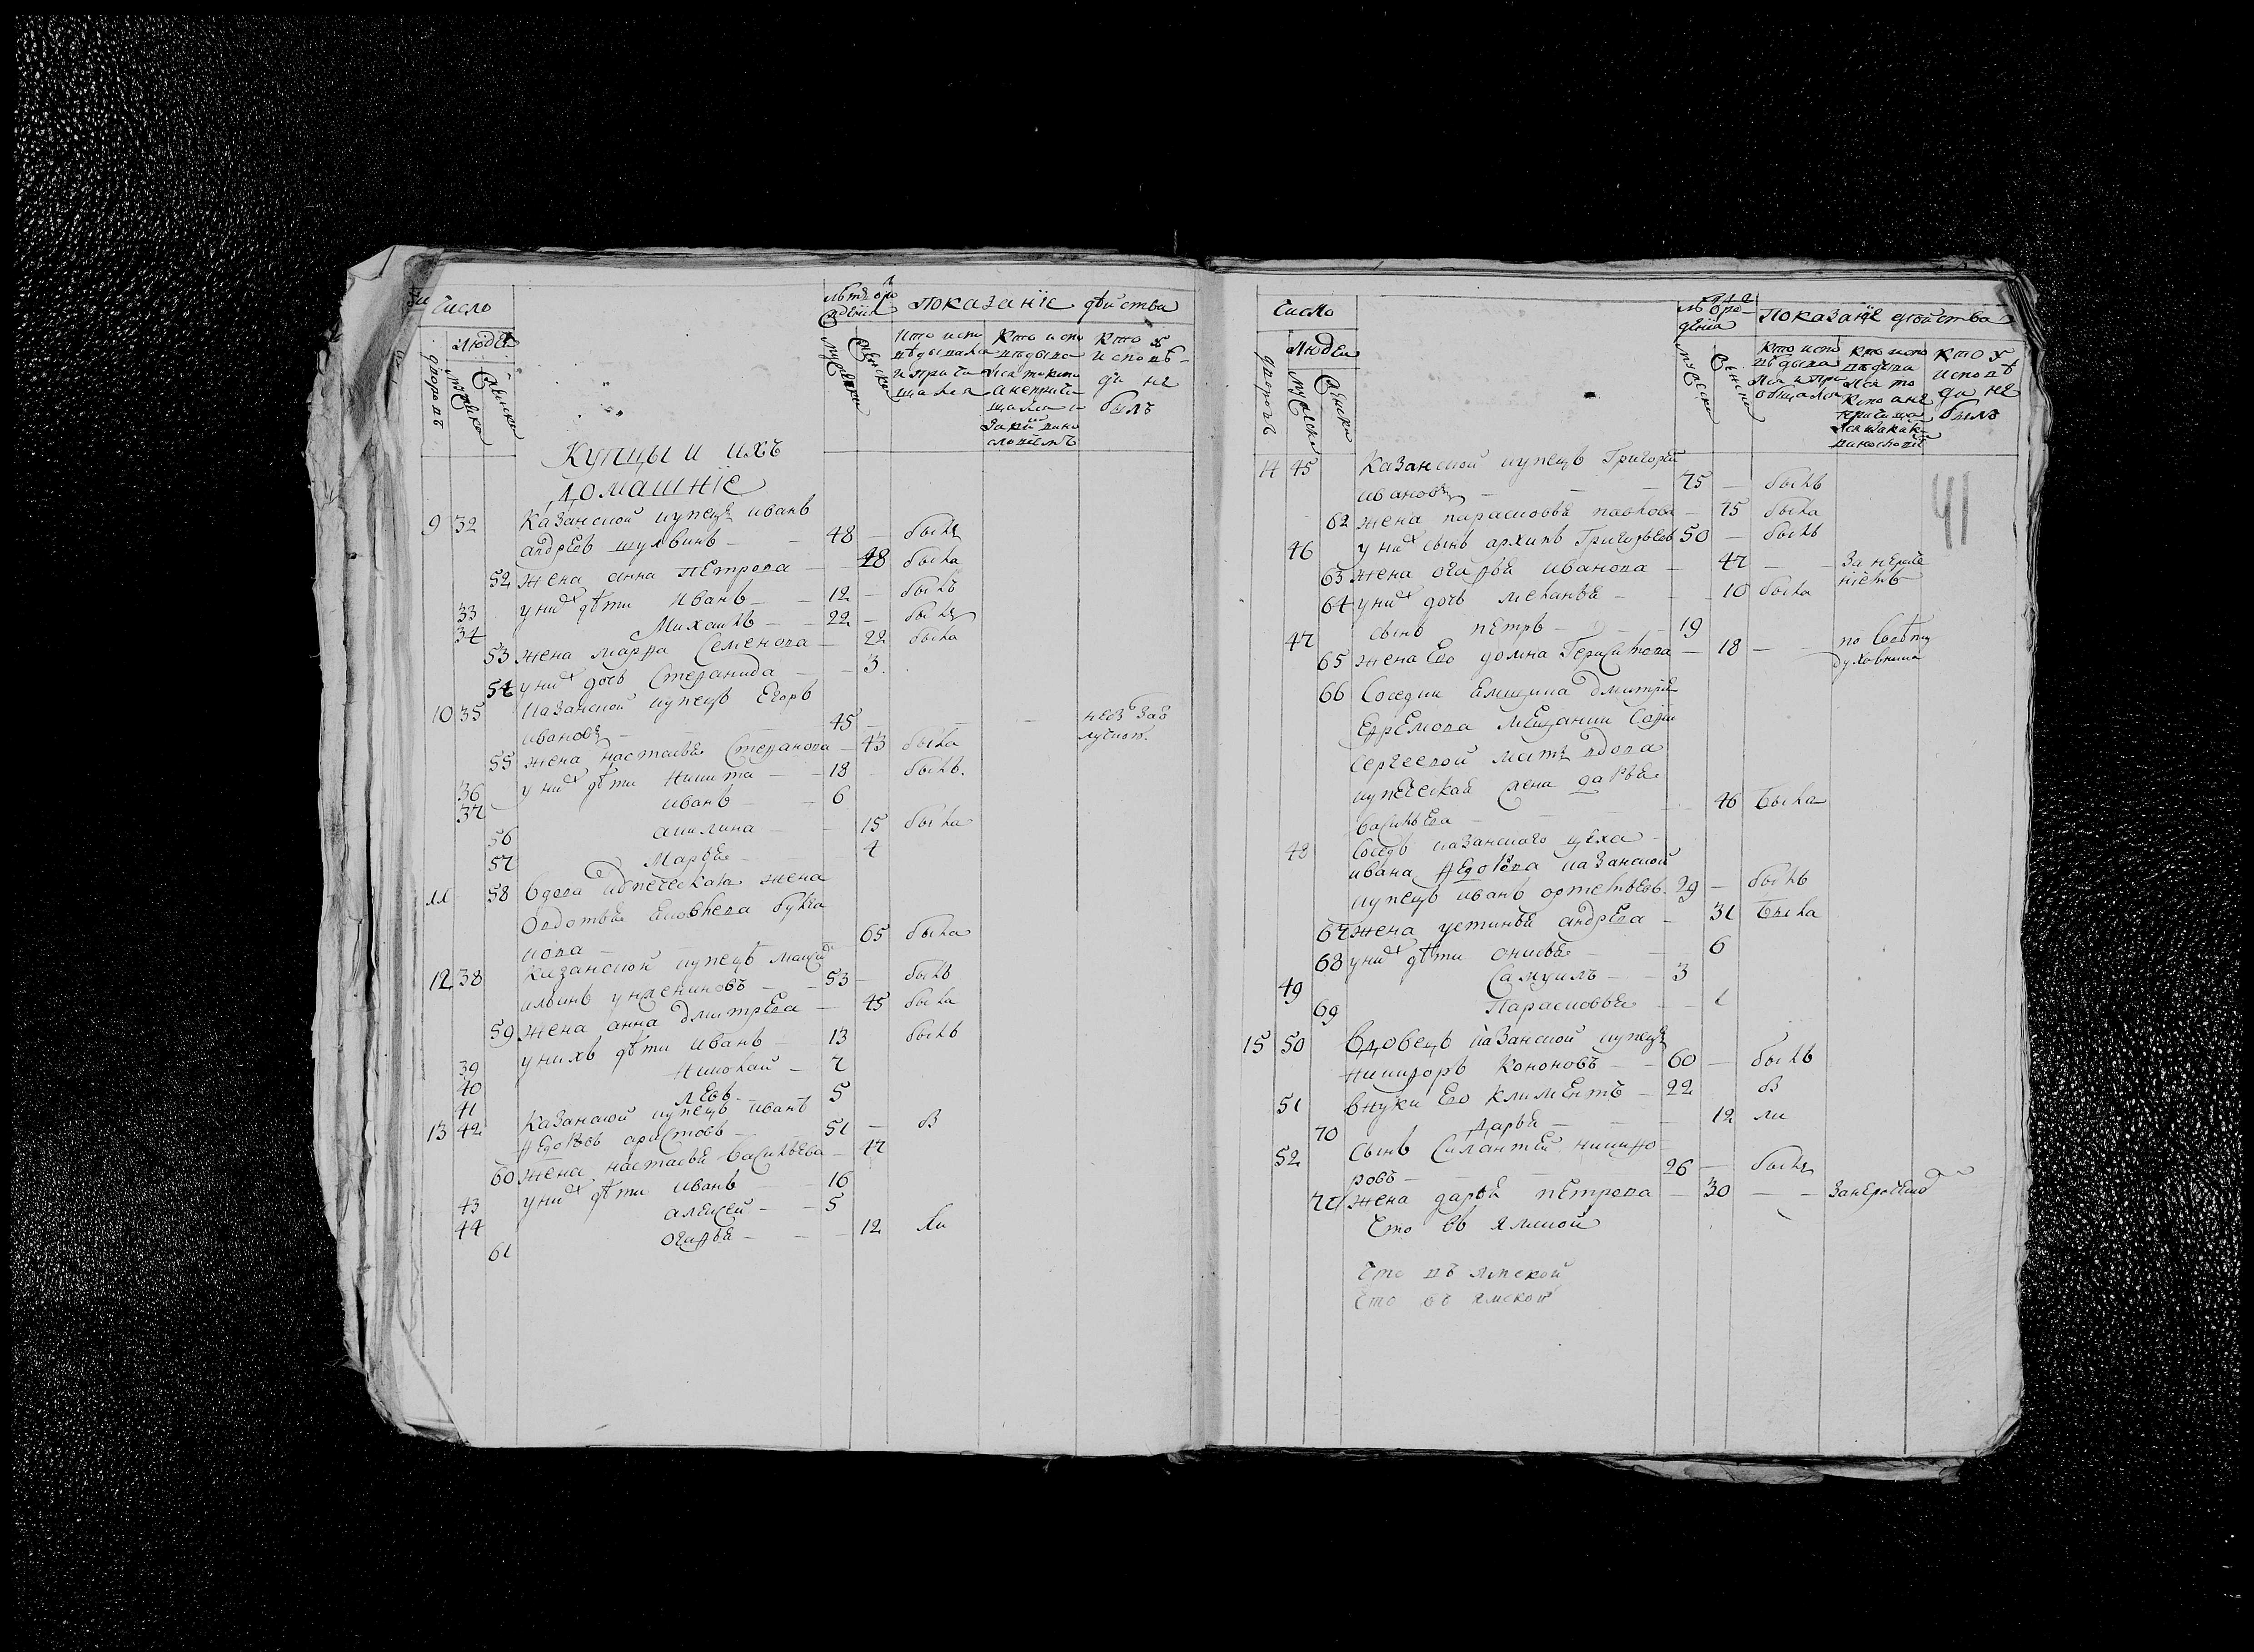 Число
людей
дворовъ
мужеска
женска
лѣтъ от ро
ждения
мужеска
женска
показанїе дѣйства
Кто испо
вѣдывался
и прича
щался
Кто испо
вѣдыва
лся токмо
а неприча
щался и
закїмъ вино
словїемъ
Кто у
исповѣ
ди не
былъ
Купцы и ихъ
домашнїе
9 32 Казанской купецъ иванъ
андреевъ 48 — былъ
52 жена анна петрова — 48 была
33 у нихъ дѣти Иванъ — 12 — былъ
34 Михаилъ — 22 — былъ
53 жена марѳа Семенова — 22 была
54 у нихъ дочь Стефанида — 3
10 35 Казанской купецъ Егоръ
ивановъ — 45 —
55 жена настасья Степанова — 43 была
36 у нихъ дѣти Никита — 18 — былъ
37 иванъ — 6
56 акилина — 15 была
57 Марѳья — 4
11 58 Вдова купеческая жена
Авдотья
кова — 65 была
12 38 Казанской купецъ
ильинъ — 53 — былъ
59 жена анна дмитрева — 45 была
39 у нихъ дѣти иванъ — 13 былъ
40 Николай — 7
41 Левъ — 5
13 42 Казанской купецъ иванъ
Ѳедоровъ аристовъ — 51 — в
60 жена настасья васильева — 47
43 у нихъ дѣти иванъ — 16
44 алексей — 5
61 12 ли
Число
Людей
дворовъ
мужеска
женска
лѣтъ от ро
дения
мужеска
женска
показанїе дѣйства
Кто испо
вѣдыва
лся и при
общался
Кто испо
вѣдыва
лся то
кмо а не
прича ща
лся и заким
винословї
Кто у
исповѣ
ди не
былъ
41
14 45 Казанской купецъ Григорей
ивановъ — 75 — былъ
62 жена парасковья павлова — 75 была
46 у нихъ сынъ архипъ Григорьевъ 50 — былъ
63 жена иванова — 47 — за нераде
нїемъ
64 у нихъ дочь меланья — 10 была
47 сынъ петръ — 19
65 жена Ево домна — 18 — по совѣту
духовника
66 Соседки дмитрея
Ефремова
Сергеевой мать вдова
купеческая жена дарья
васильева — 46 была
48 Соседъ казанскаго цеха
ивана Ѳедорова казанской
купецъ иванъ 29 — былъ
67 жена устинья андрева — 31 была
68 у нихъ дѣти онисья — 6
49 Самуилъ — 3
69 Парасковья — 1
15 50 Вдовецъ казанской купецъ
Никифоръ Кононовъ — 60 — былъ
51 внуки Ево климентъ — 22 в
70 дарья — 12 ли
52 сынъ Силантей никифо
ровъ — 26 — былъ
71 жена дарья петрова — 30 — занерадени
Что въ ямской
Что въ ямской
Что въ ямской